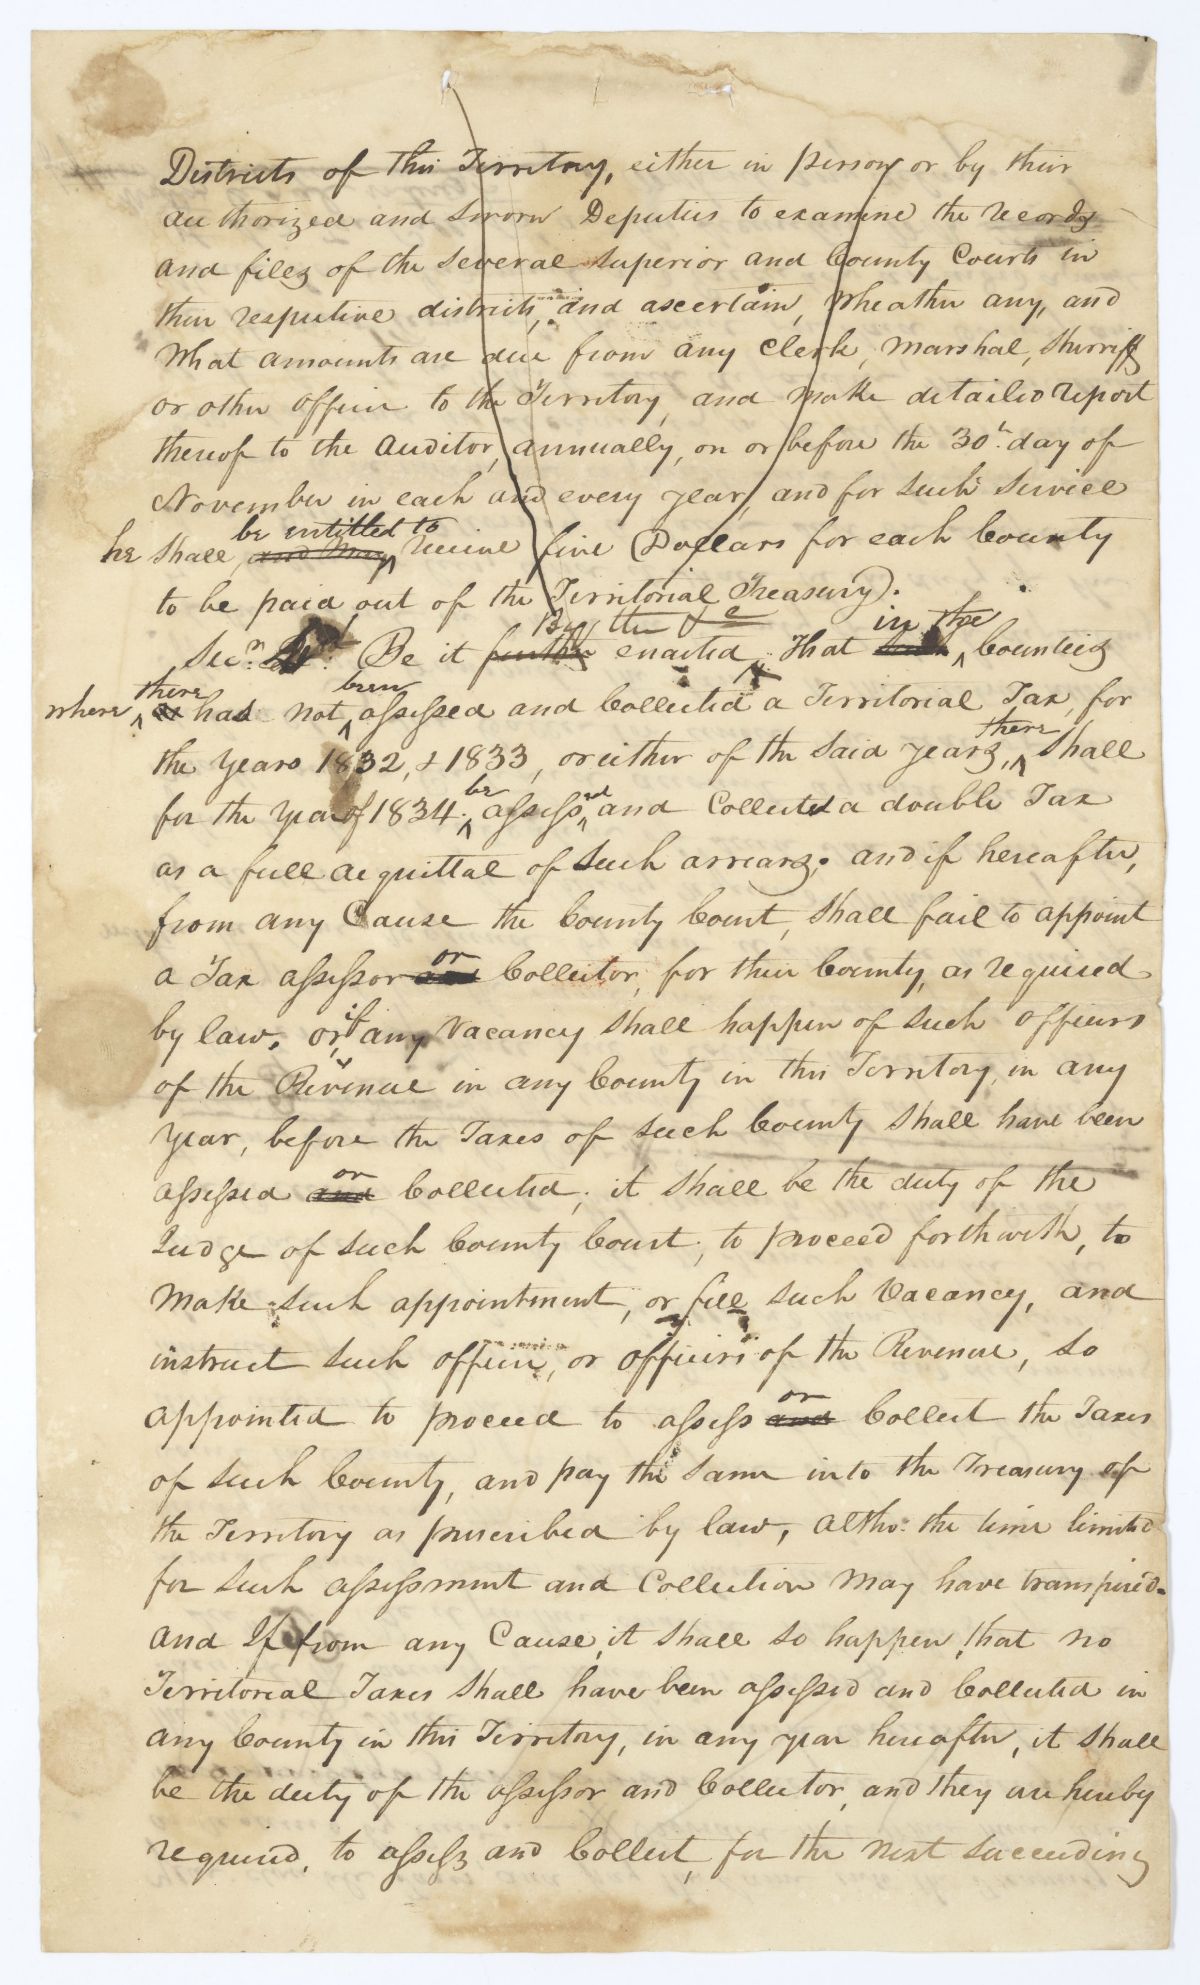 Districts of this Territory, either in person or by their
authorized and sworn Deputies to examine the records
and files of the several superior and County Courts in
their respective districts, and ascertain, wheather any, and
what amounts are due from any Clerk, Marshal, Sherriff
or other officer to the Territory, and make detailed report
thereof to the Auditor, annually, on or before the 30th. day of
November in each and every year, and for such service
be entitled to
he shall, and may receive five Dollars for each County
to be paid out of the Territorial Treasury).
By the &c in the
Secn. Be it further enacted, That Counties
there been
where has not assessed and Collected a Territorial Tax, for
there
the years 1832, & 1833, or either of the said years, shall
be ed
for the year of 1834. assess and Collected a double Tax
as a full acquittal of such arrears. and if hereafter,
from any Cause the County Court, shall fail to appoint
or
a Tax assessor and Collector, for their County, as required
if
by law, or any vacancy shall happen of such officers
of the Revenue in any County in this Territory, in any
year, before the Taxes of such County shall have been
or
assessed and Collected, it shall be the duty of the
Judge of such County Court, to proceed forthwith, to
make such appointment, or fill such vacancy, and
instruct such officer, or officers of the Revenue, so
or
appointed to proceed to assess and Collect the Taxes
of such County, and pay the same into the Treasury of
the Territory as prescribed by law, altho: the time limited
for such assessment and Collection may have transpired-
and If from any Cause, it shall so happen, that no
Territorial Taxes shall have been assessed and Collected in
any County in this Territory, in any year hereafter, it shall
be the duty of the assessor and Collector, and they are hereby
required, to assess and Collect, for the next succeeding